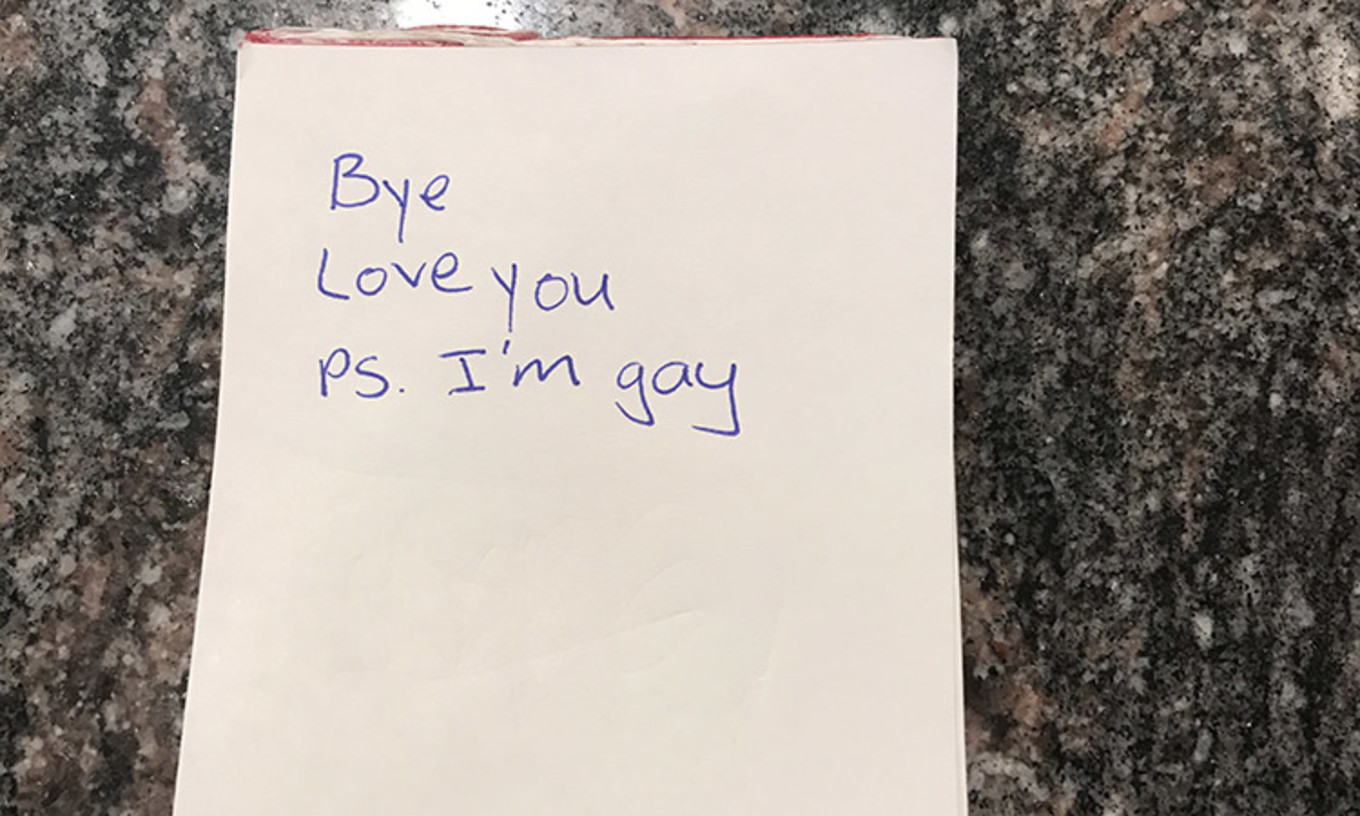 Bye
Love you
PS. I'm gay